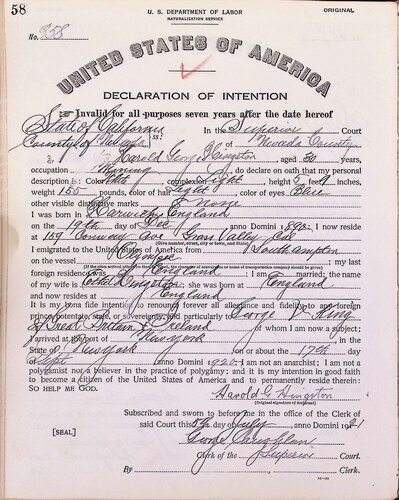 58
U. S. DEPARTMENT OF LABOR
NATURALIZATION SERVICE
ORIGINAL
No. 258
UNITED STATES OF AMERICA
DECLARATION OF INTENTION
Invalid for all purposes seven years after the date hereof
State of California
In the Superior Court
County of Nevada ss: of Nevada County
I, Harold George Hingston, aged 30 years,
occupation Mining, do declare on oath that my personal
description is: Color white, complexion light, height 5 feet 9 inches,
weight 155 pounds, color of hair light, color of eyes Blue
other visible distinctive marks none
I was born in Harwich, England
on the 19th day of Dec, anno Domini 1890; I now reside
at 159 Conway Ave Grass Valley Cal
(Give number, street, city or town, and State)
I emigrated to the United States of America from Southampton
on the vessel Olympic; my last
(If the alien arrived otherwise than by vessel, the character of conveyance or name of transportation company should be given)
foreign residence was England; I am married; the name
of my wife is Hingston; she was born at England
and now resides at England
It is my bona fide intention to renounce forever all allegiance and fidelity to any foreign
prince, potentate, state, or sovereignty, and particularly to George V King
of Great Britain & Ireland of whom I am now a subject;
I arrived at the port of New York, in the
State of New York, on or about the 17th day
of Sept, anno Domini 1920; I am not an anarchist; I am not a
polygamist nor a believer in the practice of polygamy; and it is my intention in good faith
to become a citizen of the United States of America and to permanently reside therein:
SO HELP ME GOD.
Harold G Hingston
(Original signature of declarant)
Subscribed and sworn to before me in the office of the Clerk of
said Court this 5th day of July, anno Domini 1921
[SEAL]
George
Clerk of the Superior Court.
By, Clerk.